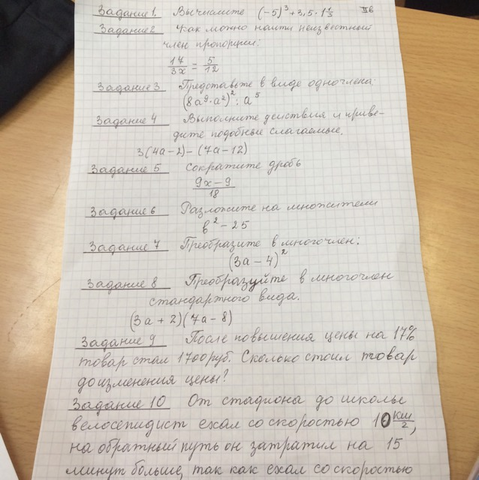 Задание 1. Вычислите (-5)³+3,5·1 IIв
Задание 2 Как можно найти неизвестный
член пропорции:
17/3x = 5/12
Задание 3 Представьте в виде одночлена
(8a⁴·a²)² : a⁵
Задание 4 Выполните действия и приве-
дите подобные слагаемые.
3(4a-2)-(7a-12)
Задание 5 Сократите дробь
9x-9/18
Задание 6 Разложите на множители
b²-25
Задание 7 Преобразите в многочлен:
(3a-4)²
Задание 8 Преобразуйте в многочлен
стандартного вида.
(3a+2)(7a-8)
Задание 9 После повышения цены на 17%
товар стал 1700 руб. Сколько стоил товар
до изменения цены?
Задание 10 От стадиона до школы
велосепидист ехал со скоростью 10 км/ч,
на обратный путь он затратил на 15
минут больше, так как ехал со скоростью